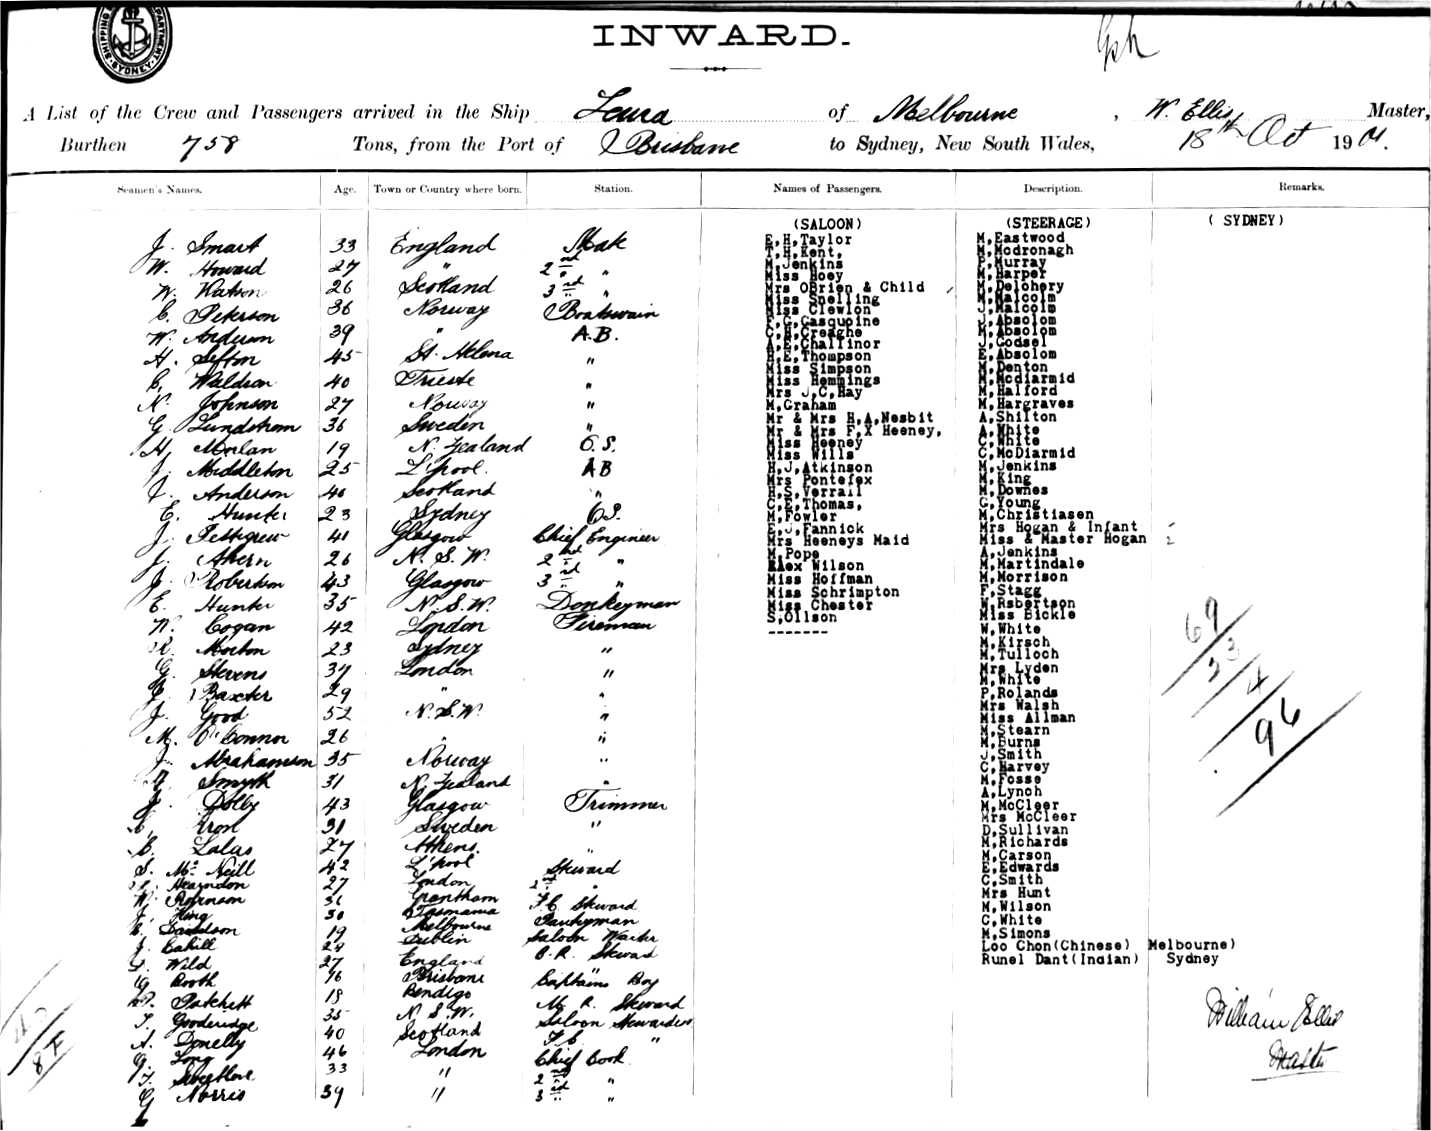 SHIPPING DEPARTMENT SYDNEY
INWARD.
A List of the Crew and Passengers arrived in the Ship Leura of Melbourne, W. Ellis Master,
Burthen 758 Tons, from the Port of Brisbane to Sydney, New South Wales, 18th Oct 1901.
Seamen's Names. Age. Town or Country where born. Station. Names of Passengers. Description. Remarks.
J. Smart 33 England Mate
W. Howard 27 " 2nd "
W. Watson 26 Scotland 3rd "
C. Peterson 36 Norway Boatswain
W. Anderson 39 " A.B.
H. Sefton 45 St. Helena "
C. Waldson 40 Trieste "
N. Johnson 27 Norway "
G. Lundstrom 36 Sweden "
H. 19 N. Zealand O.S.
J. Middleton 25 L'pool. AB
J. Anderson 40 Scotland "
E. Hunter 23 Sydney OS.
J. Pettigrew 41 Glasgow Chief Engineer
J. Ahern 26 N.S.W. 2nd "
J. Robertson 43 Glasgow 3rd "
E. Hunter 35 N.S.W. Donkeyman
W. Cogan 42 London Fireman
R. Morton 23 Sydney "
G. Stevens 37 London "
Baxter 29 " "
J. Good 52 N.S.W. "
M. O'Connor 26 " "
J. Abrahamson 35 Norway "
Smyth 31 N. Zealand "
J. Dolby 43 Glasgow Trimmer
31 Sweden "
Lalas 27 Athens. "
S. McNeill 42 L'pool Steward
Hearndon 27 London 2nd "
W. Robinson 31 Grantham F.C. Steward
J. King 30 Tasmania Pantryman
Davidson 19 Melbourne Saloon Waiter
J. Cahill 28 Dublin B.R. Steward
Wild 27 England
G. Booth 16 Brisbane Captains Boy
Patchett 18 Bendigo M.R. Steward
T. Gooderidge 35 N.S.W. Saloon Stewardess
A. Donelly 40 Scotland F.C. "
G. Long 46 London Chief Cook
33 " 2nd "
G. Norris 39 " 3rd "
(SALOON)
E,H,Taylor
T,H,Kent,
M,Jenkins
Miss Hoey
Mrs OBrien & Child
Miss Snelling
Miss Clewlon
F,G,Gasquoine
C,H,Creaghe
A,E,Challinor
H,E,Thompson
Miss Simpson
Miss Hemmings
Mrs J,C,Hay
M,Graham
Mr & Mrs H,A,Nesbit
Mr & Mrs F,X Heeney,
Miss Heeney
Miss Wills
H,J,Atkinson
Mrs Pontefex
H,S,Verrall
C,E,Thomas,
M,Fowler
E,J,Fannick
Mrs Heeneys Maid
M,Pope
Alex Wilson
Miss Hoffman
Miss Schrimpton
Miss Chester
S,Ollson
-------
(STEERAGE)
M,Eastwood
M,Modronagh
P,Murray
M,Harper
M,Delohery
M,Malcolm
J,Malcolm
J,Absolom
M,Absolom
J,Godsel
E,Absolom
M,Denton
M,Mcdiarmid
M,Halford
M,Hargraves
A,Shilton
A,White
C,White
C,McDiarmid
M,Jenkins
M,King
M,Downes
G,Young
M,Christiasen
Mrs Hogan & Infant
Miss & Master Hogan 2
A,Jenkins
M,Martindale
M,Morrison
F,Stagg
W,Robertson
Miss Bickle
W,White
M,Kirsch
M,Tulloch
Mrs Lyden
M,White
P,Rolands
Mrs Walsh
Miss Allman
M,Stearn
M,Burns
J,Smith
C,Harvey
M,Fosse
A,Lynch
M,McCleer
Mrs McCleer
D,Sullivan
M,Richards
M,Carson
E,Edwards
C,Smith
Mrs Hunt
M,Wilson
C,White
M,Simons
Loo Chon(Chinese) Melbourne)
Runel Dant(Indian) Sydney
(SYDNEY)
69
23
4
96
William Ellis
Master